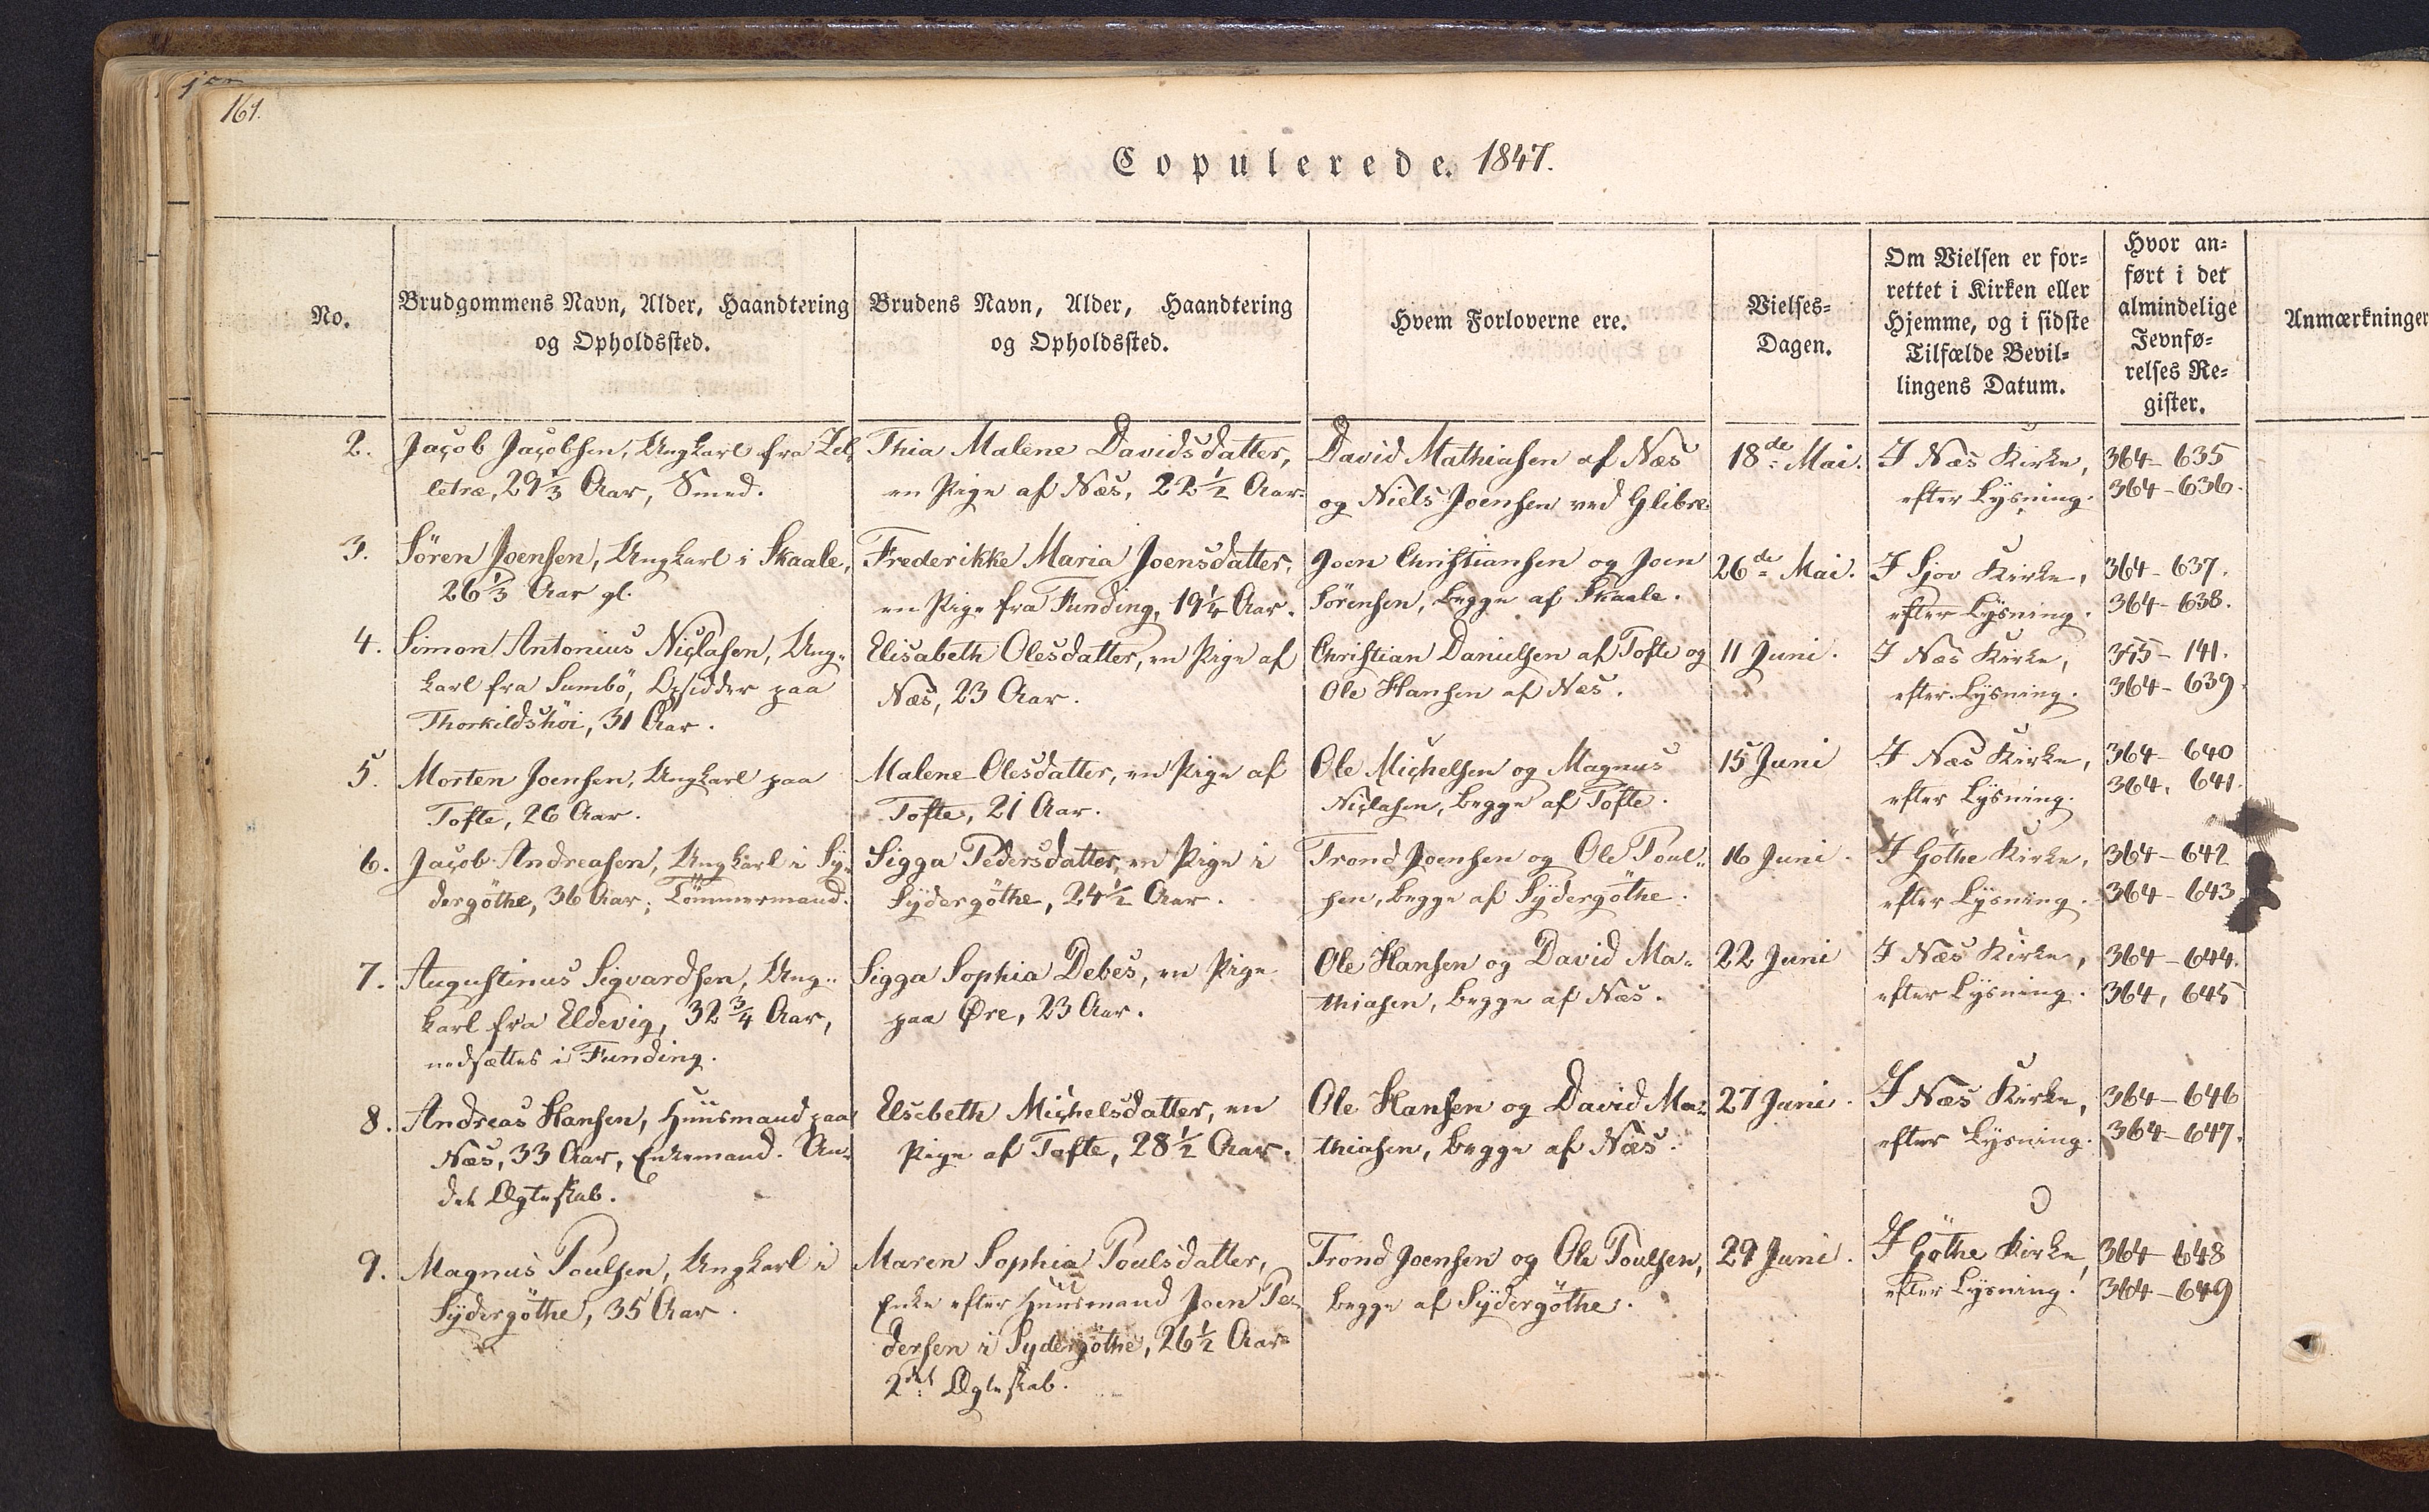 161.
Copulerede. 1847.
No.
Brudgommens Navn, Alder, Haandtering
og Opholdssted.
Brudens Navn, Alder, Haandtering
og Opholdssted.
Hvem Forloverne ere.
Vielses-
Dagen.
Om Vielsen er for-
rettet i Kirken eller
Hjemme, og i sidste
Tilfælde Bevil-
lingens Datum.
Hvor an-
ført i det
almindelige
Jevnfø-
relses Re-
gister.
Anmærkninger
2.
Jacob Jacobsen, Ungkarl fra Zel-
letræ, 29 1/3 Aar, Smed.
Thia Malene Davidsdatter,
en Pige af Næs, 22 1/2 Aar.
David Mathiasen af Næs
og Niels Joensen ved Glibre.
18de Mai.
I Næs Kirke,
efter Lysning.
364 - 635
364 - 636.
3.
Sören Joensen, Ungkarl i Skaale,
26 1/3 Aar gl.
Frederikke Maria Joensdatter,
en Pige fra Funding, 19 1/4 Aar.
Joen Christiansen og Joen
Sörensen, begge af Skaale.
26de Mai.
I Sjov Kirke,
efter Lysning.
364 - 637.
364 - 638.
4.
Simon Antonius Niclasen, Ung-
karl fra Sumbö, Opsidder paa
Thorkildshöi, 31 Aar.
Elisabeth Olesdatter, en Pige af
Næs, 23 Aar.
Christian Danielsen af Tofte og
Ole Hansen af Næs.
11 Juni.
I Næs Kirke,
efter Lysning.
- 141.
364 - 639.
5.
Morten Joensen, Ungkarl paa
Tofte, 26 Aar.
Malene Olesdatter, en Pige af
Tofte, 21 Aar.
Ole Michelsen og Magnus
Niclasen, begge af Tofte.
15 Juni
I Næs Kirke,
efter Lysning.
364 - 640
364, 641.
6.
Jacob Andreasen, Ungkarl i Sy-
dergöthe, 36 Aar; Tömmermand.
Sigga Pedersdatter, en Pige i
Sydergöthe, 24 1/2 Aar.
Trond Joensen og Ole Poul-
sen, begge af Sydergöthe.
16 Juni.
I Göthe Kirke,
efter Lysning.
364 - 642
364 - 643
7.
Augustinus Sigvardsen, Ung-
karl fra Eldevig, 32 3/4 Aar,
nedsættes i Funding.
Sigga Sophia Debes, en Pige
paa Øre, 23 Aar.
Ole Hansen og David Ma-
thiasen, begge af Næs.
22 Juni
I Næs Kirke,
efter Lysning.
364 - 644.
364, 645
8.
Andreas Hansen, Huusmand paa
Næs, 33 Aar, Enkemand. An-
det Ægteskab.
Elsebeth Michelsdatter, en
Pige af Tofte, 28 1/2 Aar.
Ole Hansen og David Ma-
thiasen, begge af Næs.
27 Juni.
I Næs Kirke,
efter Lysning.
364 - 646
364 - 647.
9.
Magnus Poulsen, Ungkarl i
Sydergöthe, 35 Aar.
Maren Sophia Poulsdatter,
Enke efter Huusmand Joen Pe-
dersen i Sydergöthe, 26 1/2 Aar
2det Ægteskab.
Trond Joensen og Ole Poulsen,
begge af Sydergöthe.
29 Juni.
I Göthe Kirke,
efter Lysning.
364 - 648
364 - 649